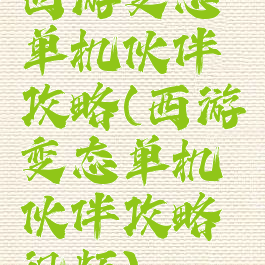 西游变态
单机伙伴
攻略(西游
变态单机
伙伴攻略
视频)